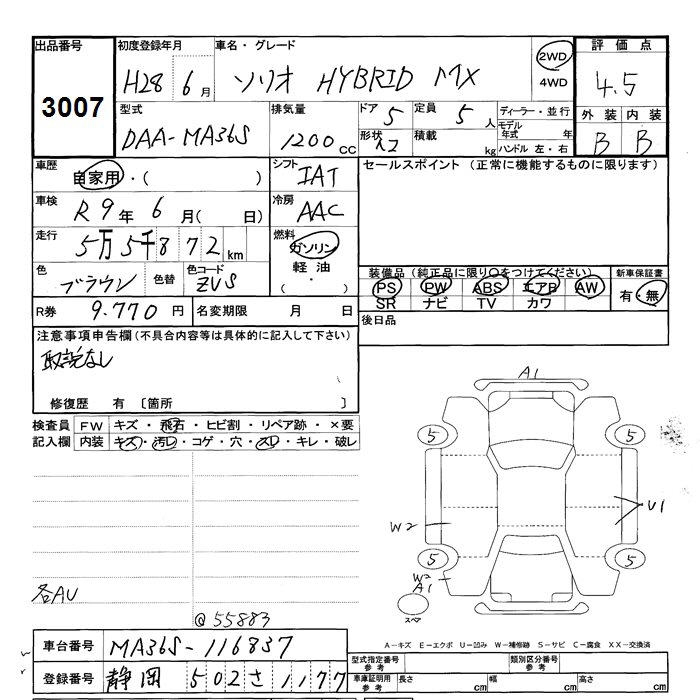 出品番号
3007
初度登録年月
H28 6月
車名・グレード
ソリオ HYBRID MX
2WD
4WD
評価点
4.5
外装 内装
B B
型式
DAA-MA36S
排気量
1200cc
ドア
5
定員
5人
形状
積載
kg
ディーラー・並行
モデル年式 年
ハンドル 左・右
車歴
自家用・( )
シフト
IAT
セールスポイント (正常に機能するものに限ります)
車検
R9年6月( 日)
冷房
AAC
走行
5万5千872km
燃料
ガソリン
軽油
( ・ )
色
ブラウン
色替
色コード
ZVS
装備品(純正品に限り○をつけてください)
PS PW ABS エアB AW
SR ナビ TV カワ
新車保証書
有・無
R券
9.770円
名変期限 月 日
後日品
注意事項申告欄(不具合内容等は具体的に記入して下さい)
取説なし
修復歴 有 〔箇所 〕
検査員
記入欄
FW キズ・飛石・ヒビ割・リペア跡・×要
内装 キズ・汚レ・コゲ・穴・スレ・キレ・破レ
A1
5
5
U1
W2
5
5
W2
A1
スペア
各AU
@55883
A-キズ E-エクボ U-凹み W-補修跡 S-サビ C-腐食 XX-交換済
車台番号
MA36S-116837
登録番号
静岡 502 さ 1177
型式指定番号
参考
類別区分番号
参考
車庫証明用
参考
長さ cm
幅 cm
高さ cm